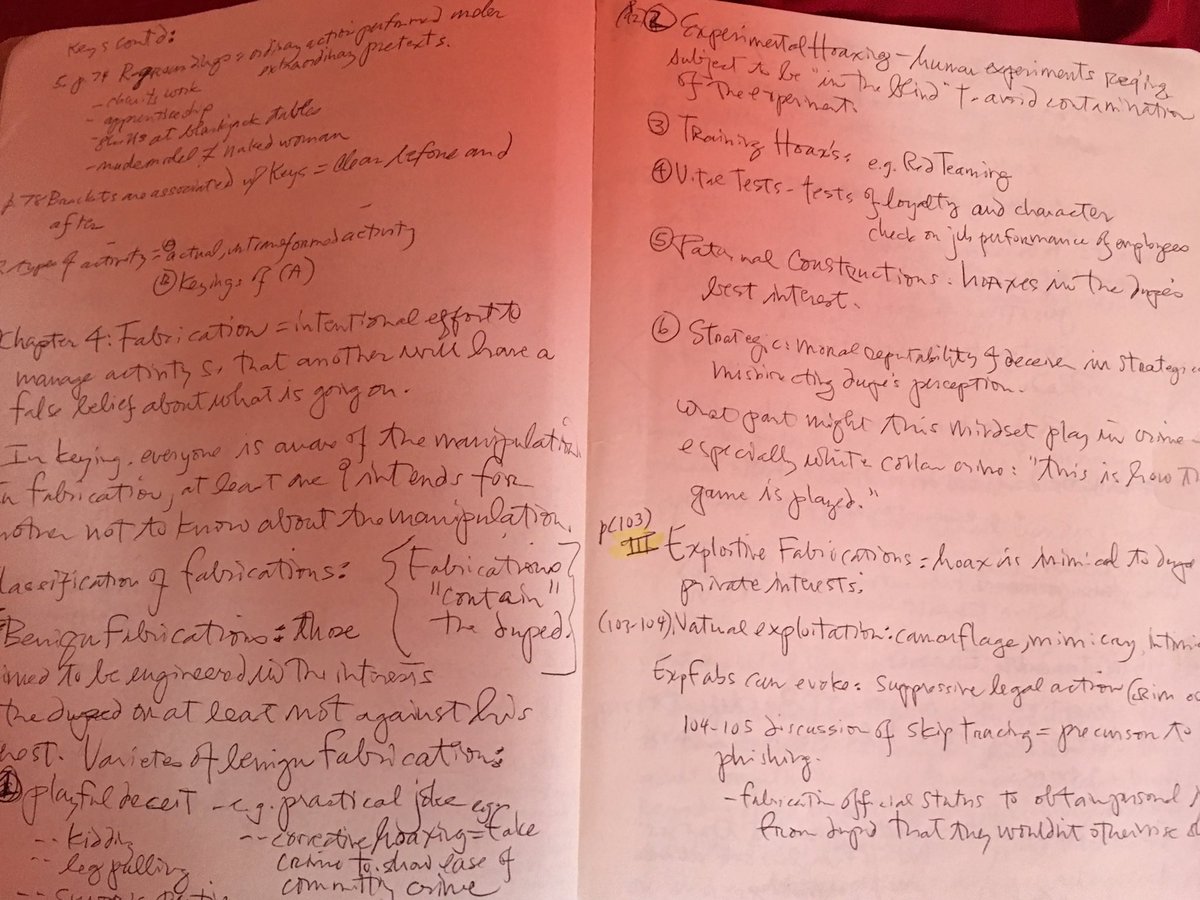 Keys cont'd:
5. p. 74 Regroundings = ordinary action performed under
extraordinary pretexts.
- charity work
- apprenticeship
- shills at blackjack tables
- nude model ≠ naked woman
p. 78 Brackets are associated w/ Keys = clear before and
after
2 types of activity = actual, untransformed activity
Keyings of (A)
Chapter 4: Fabrication = intentional effort to
manage activity so that another will have a
false belief about what is going on.
In keying, everyone is aware of the manipulation
In fabrication, at least one intends for
nother not to know about the manipulation.
lassification of fabrications:
{Fabrications
"contain"
the duped.}
Benign Fabrications: those
imed to be engineered in the interests
the duped or at least not against his
Varieties of benign fabrications:
playful deceit - e.g. practical joke
-- kidding
-- leg pulling
-- corrective hoaxing = fake
crime to show ease of
committing crime
(92) ② Experimental Hoaxing - human experiments reqing
subject to be "in the blind" to avoid contamination
of the experiment.
③ Training Hoaxs: e.g. Red Teaming
④ Vital Tests - tests of loyalty and character
check on job performance of employees
⑤ Paternal Constructions: hoaxes in the dupe's
best interest.
⑥ Strategic: moral reputability of deceiver in strategic
misdirecting dupe's perception.
what part might this mindset play in crime -
especially white collar crime: "this is how th
game is played."
p(103)
III Exploitive Fabrications = hoax is inimical to duped
private interests:
(103-104). Natural exploitation: camouflage, mimicry, intimi
Exp Fabs can evoke: Suppressive legal action
104-105 discussion of skip tracing = precursor to
phishing.
- fabricatn official status to obtain personal
from duped that they wouldn't otherwise